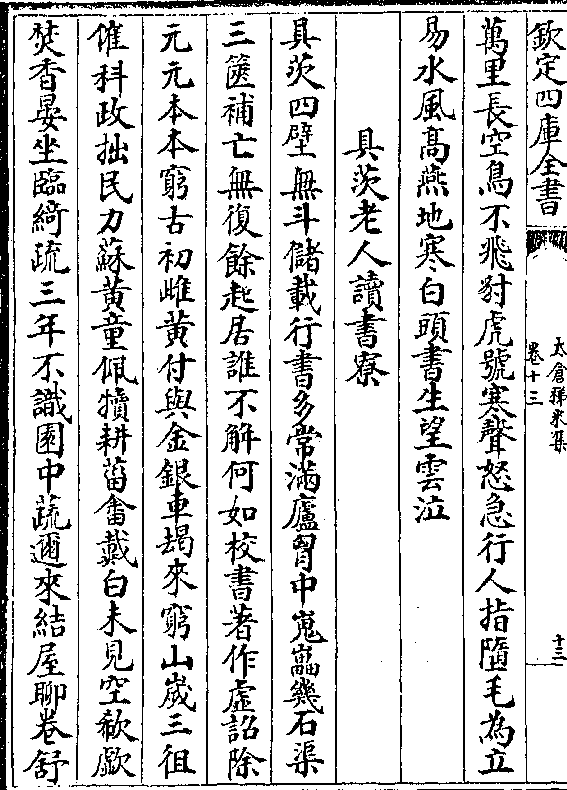 欽定四庫全書
太倉稊米集
卷十三
十三
萬里長空鳥不飛豺虎號寒聲怒急行人指墮毛為立
易水風高燕地寒白頭書生望雲泣
具茨老人讀書寮
具茨四壁無斗儲載行書多常滿廬胷中嵬嵓幾石渠
三篋補亡無復餘起居誰不解何如校書著作虛詔除
元元本本窮古初雌黃付與金銀車朅來窮山歲三徂
催科政拙民力蘇黃童佩犢耕菑畬戴白未見空欷歔
焚香晏坐臨綺疏三年不識園中蔬邇來結屋聊卷舒